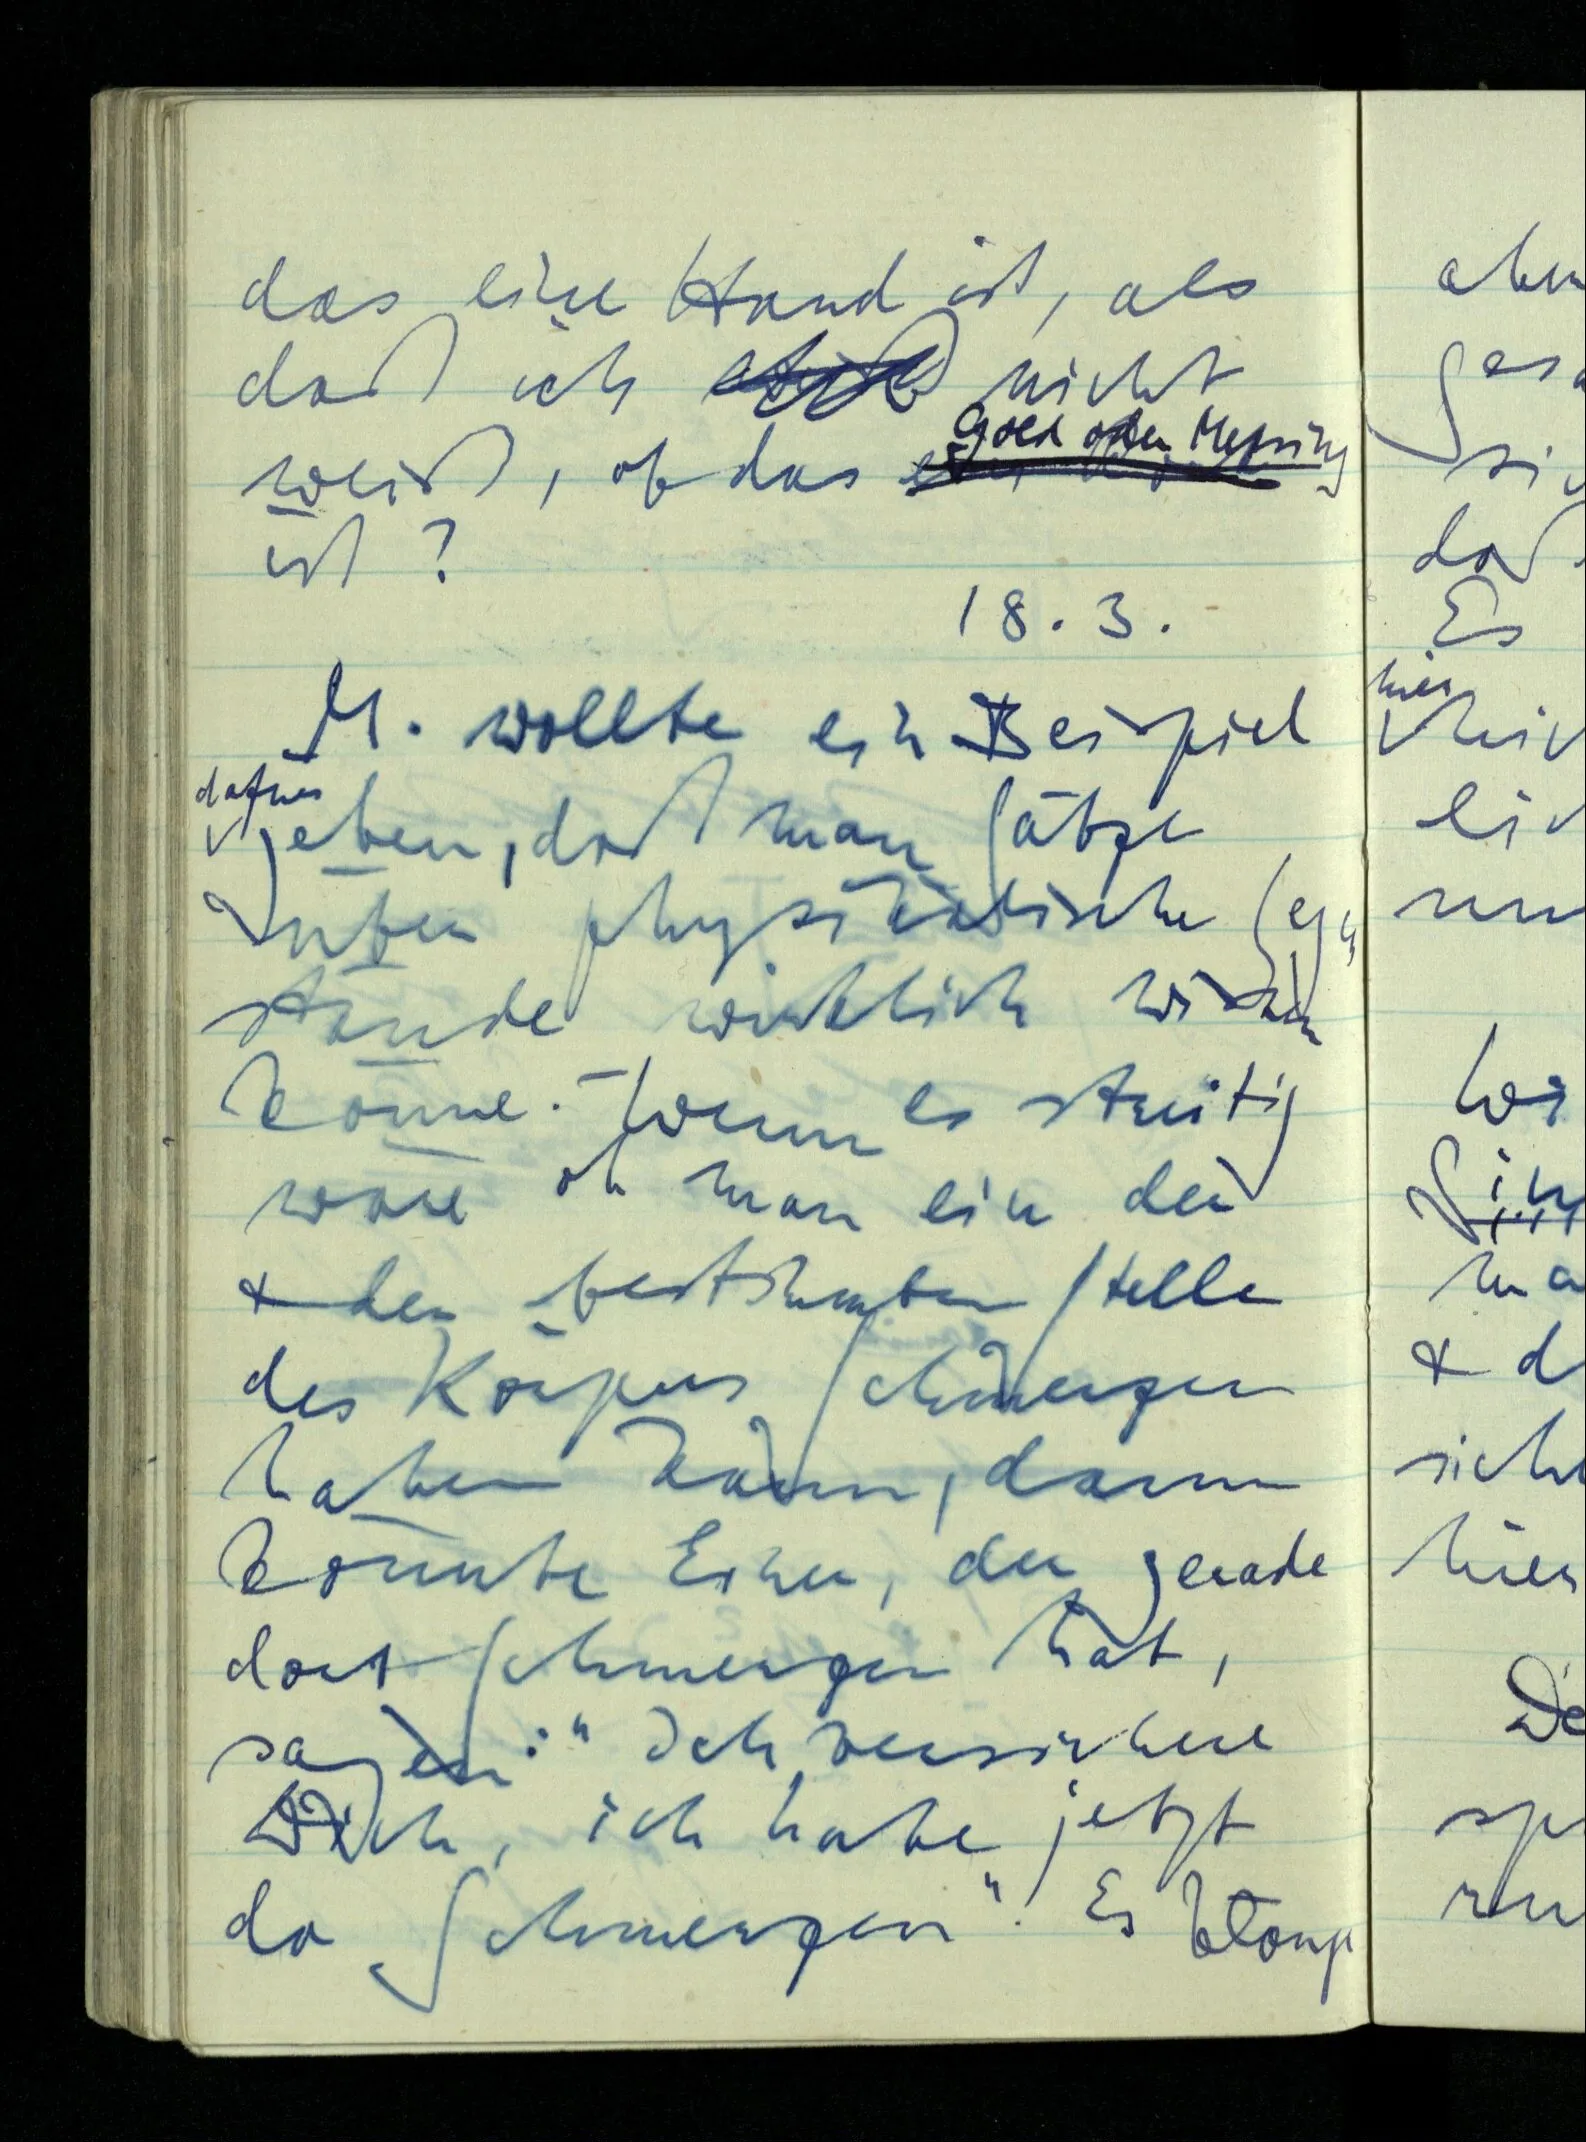 das eine Hand ist, als
daß ich nicht
weiß, ob das Gold oder Messing
ist?
18.3.
M. wollte ein Beispiel
dafür geben, daß man Sätze
über physikalische Gegen
stände wirklich wissen
könne. – Wenn es streitig
wäre ob man ein der
& der bestimmten Stelle
des Körpers Schmerzen
haben kann, dann
könnte Einer, der gerade
dort Schmerzen hat,
sagen: "Ich versichere
Dich, ich habe jetzt
da Schmerzen". Es
aber
sic
daß
Es
hier
lic
& d
hier
De